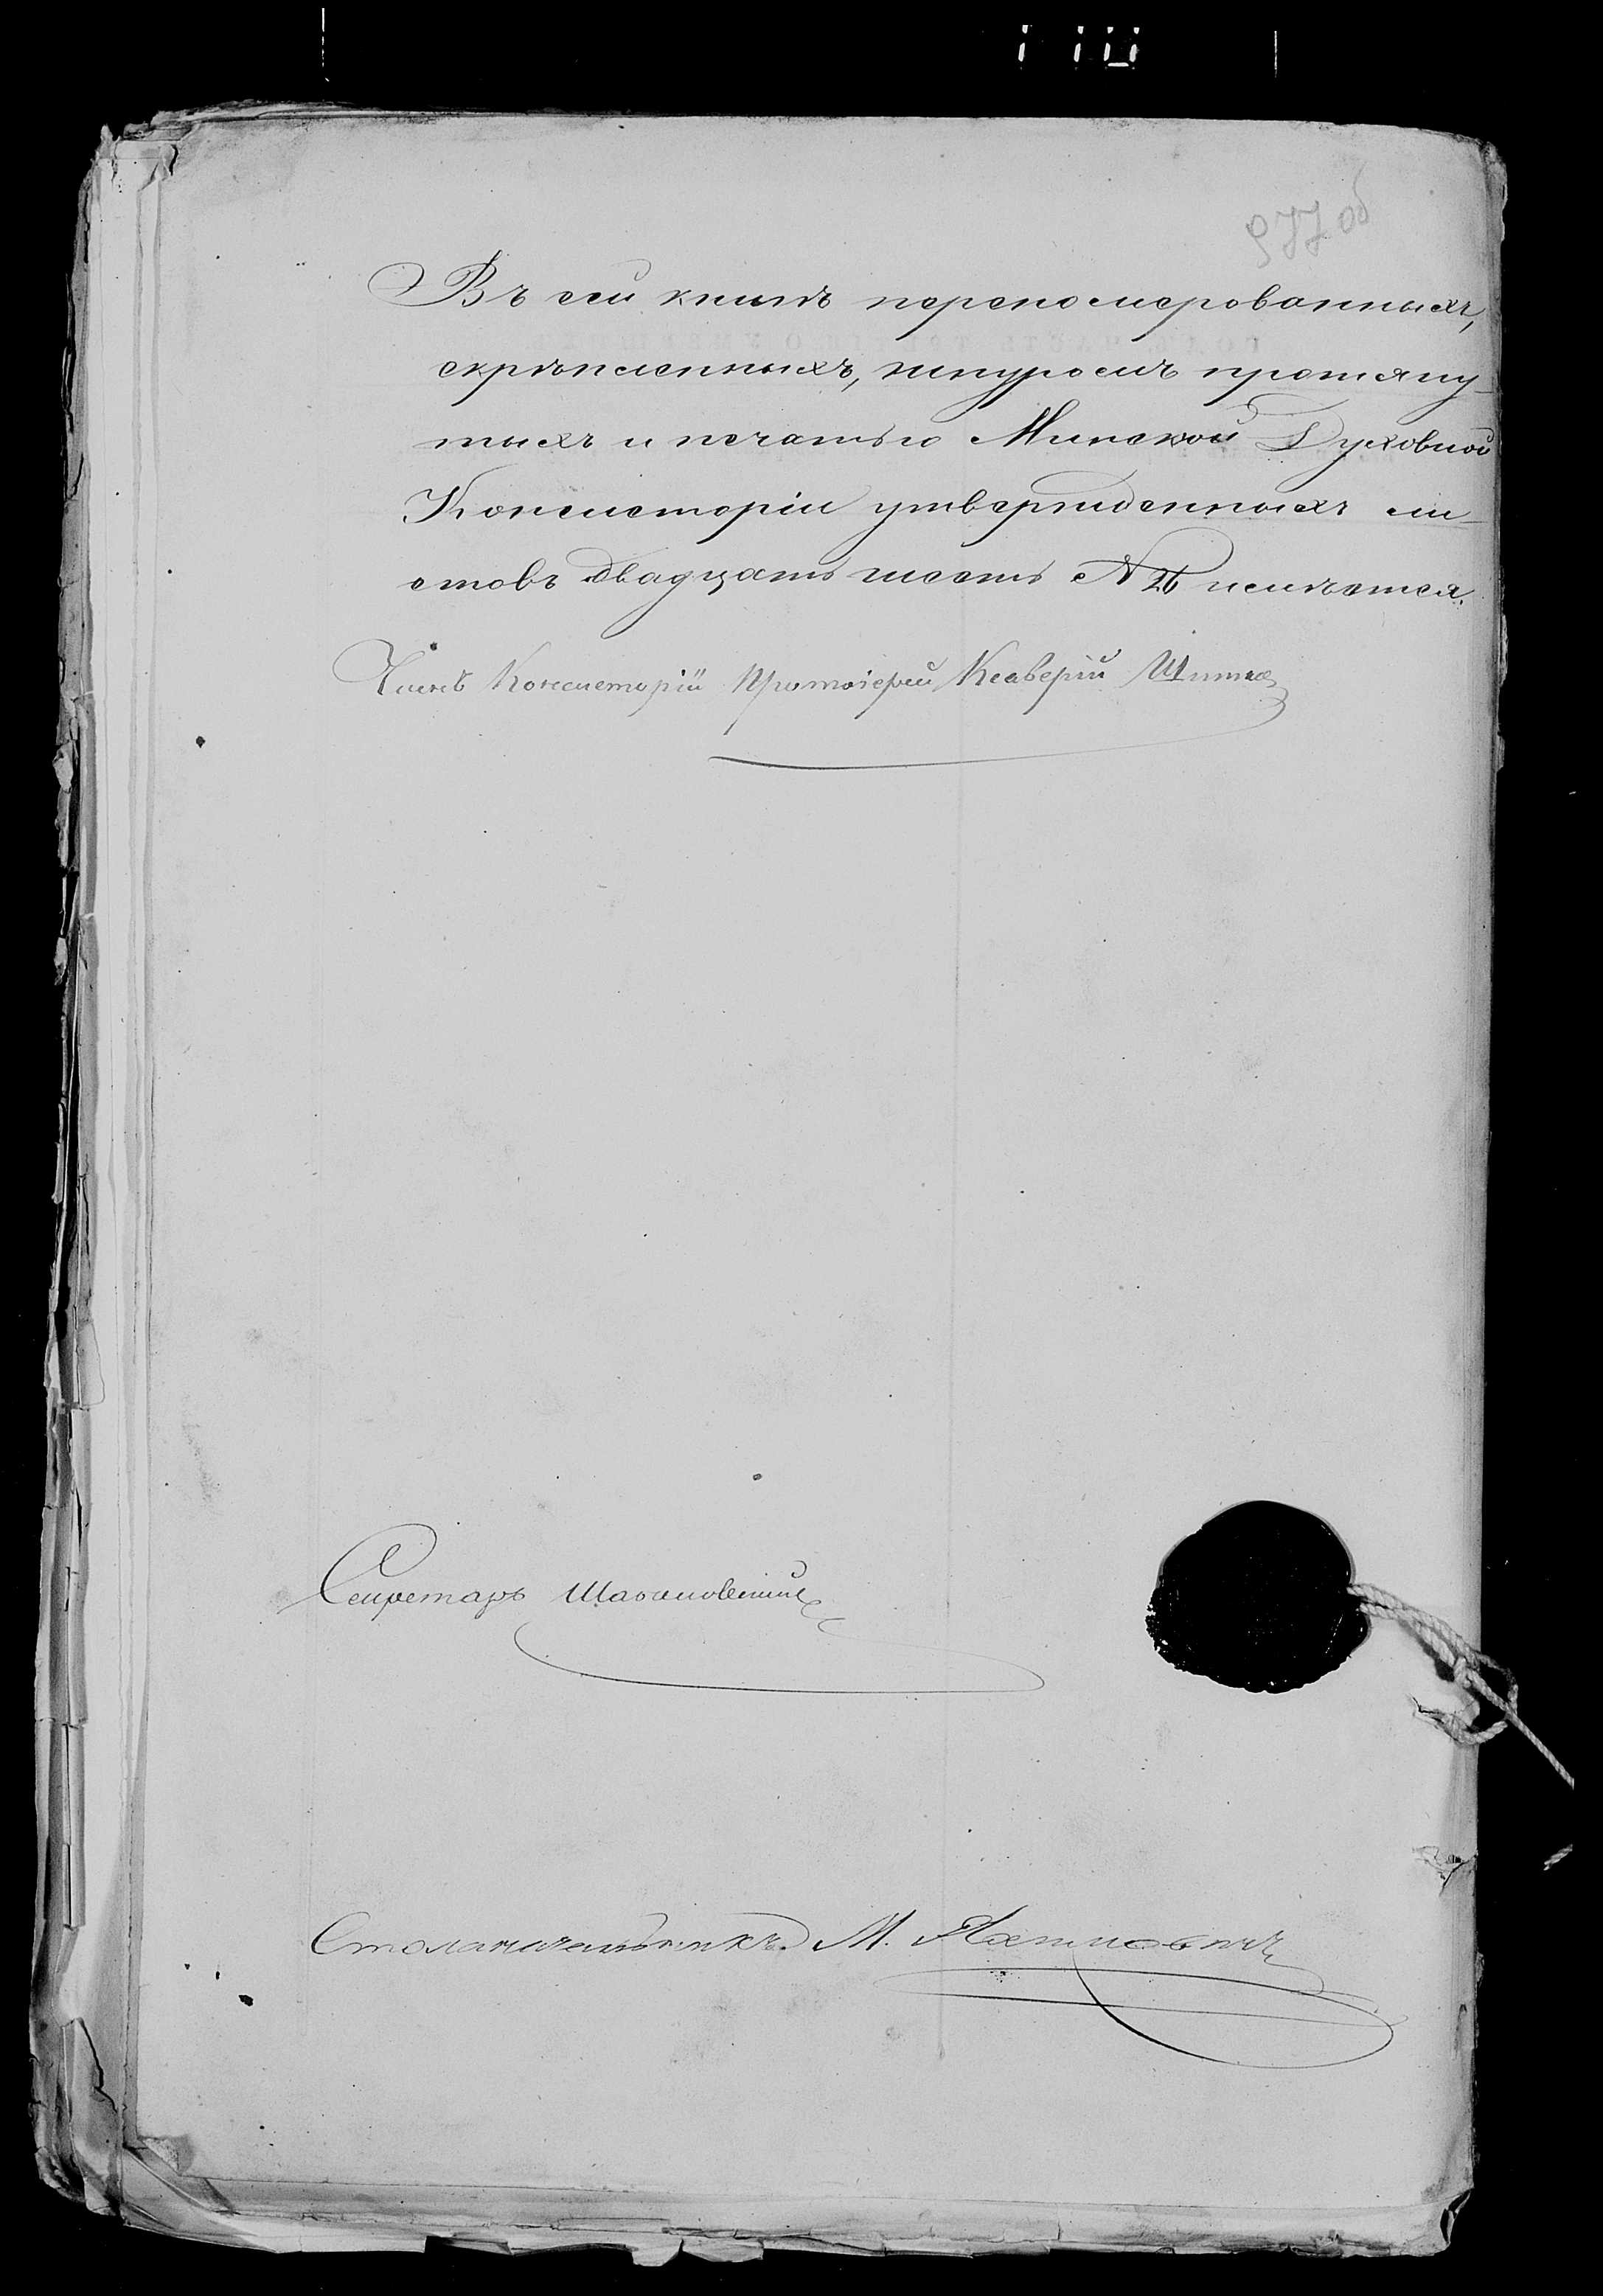 977 об
Въ сей книгѣ перепомерованныхъ,
скрѣпленныхъ, шнуромъ протяну-
тыхъ и печатью Минской Духовной
Консисторіи утвержденныхъ ли-
стовъ двадцать шесть № 26 имѣется.
Членъ Консисторіи Протоіерей Ксаверій
Секретарь
Столоначальникъ М.